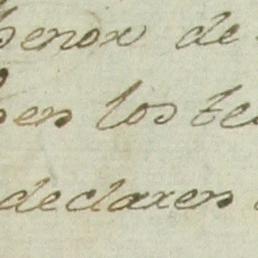 Senor de
en los te
declaren